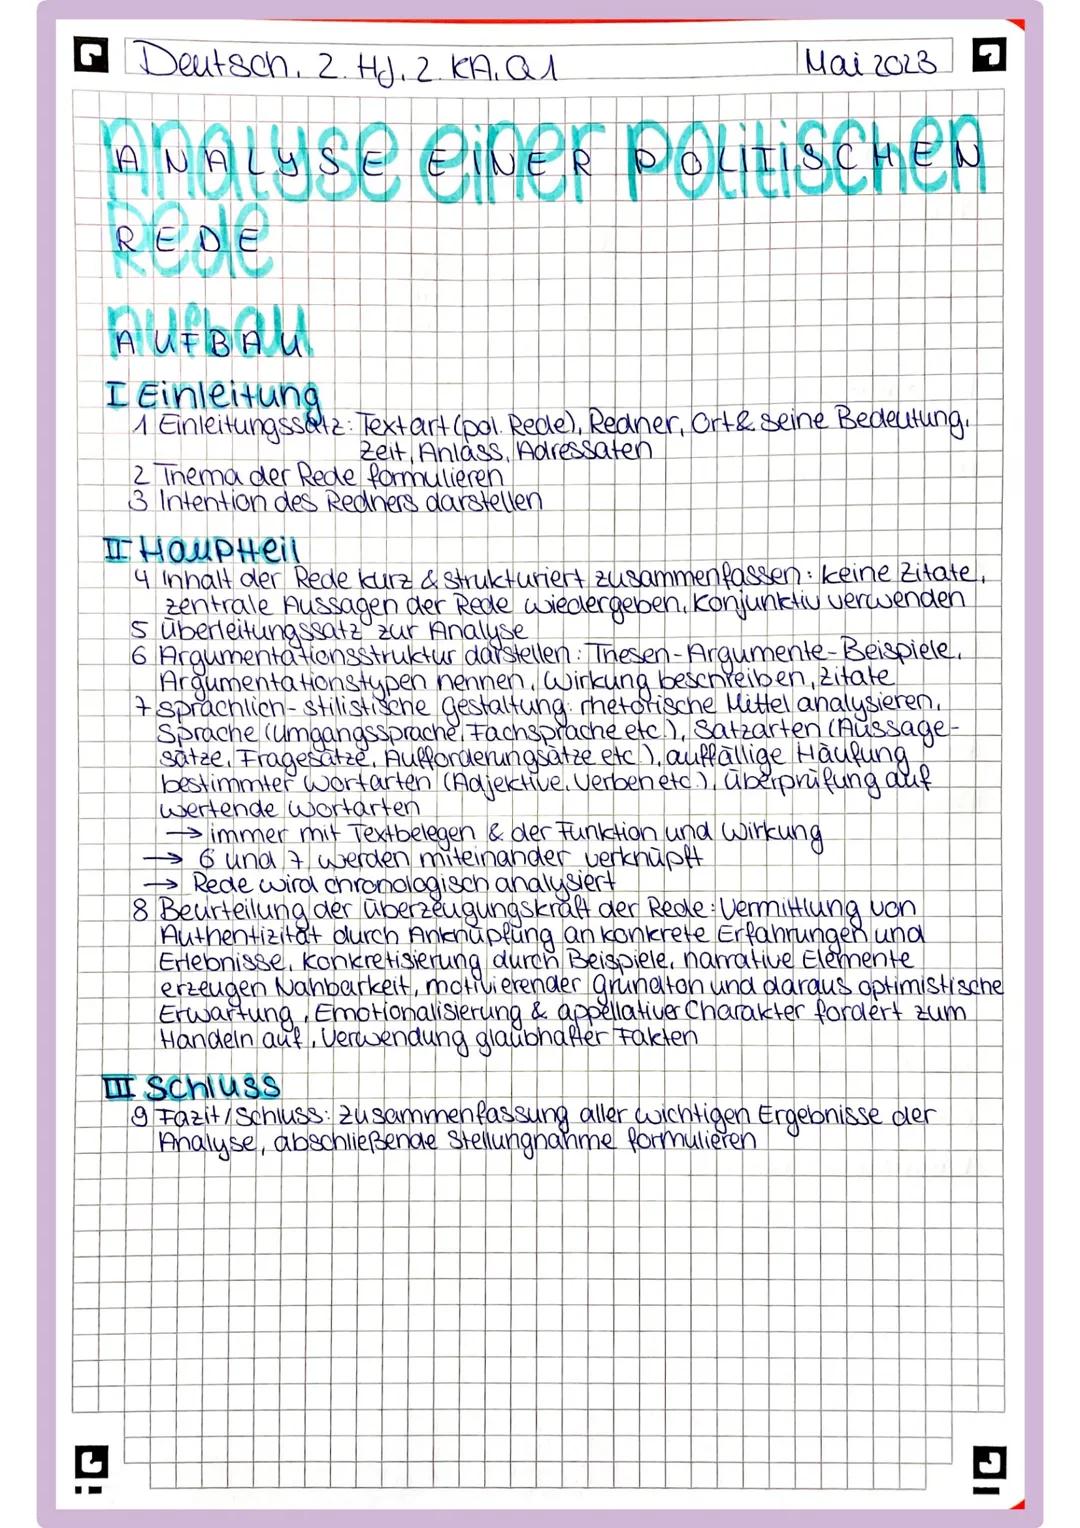 Deutsch, 2. Hj, 2. KA, Q1
Mai 2023
ANALYSE EINER POLITISCHEN
REDE
AUFBAU
I Einleitung
1 Einleitungssatz: Textart (pol. Rede), Redner, Ort & seine Bedeutung,
Zeit, Anlass, Adressaten
2 Thema der Rede formulieren
3 Intention des Redners darstellen
II Hauptteil
4 Inhalt der Rede kurz & strukturiert zusammenfassen: keine Zitate,
zentrale Aussagen der Rede wiedergeben, Konjunktiv verwenden
5 Überleitungssatz zur Analyse
6 Argumentationsstruktur darstellen: Thesen-Argumente-Beispiele,
Argumentationstypen nennen, Wirkung beschreiben, Zitate
7 sprachlich-stilistische Gestaltung: rhetorische Mittel analysieren,
Sprache (Umgangssprache, Fachsprache etc.), Satzarten (Aussage-
sätze, Fragesätze, Aufforderungsätze etc.), auffällige Häufung
bestimmter Wortarten (Adjektive, Verben etc.), Überprüfung auf
wertende Wortarten
→ immer mit Textbelegen & der Funktion und Wirkung
→ 6 und 7 werden miteinander verknüpft
→ Rede wird chronologisch analysiert
8 Beurteilung der Überzeugungskraft der Rede: Vermittlung von
Authentizität durch Anknüpfung an konkrete Erfahrungen und
Erlebnisse, Konkretisierung durch Beispiele, narrative Elemente
erzeugen Nahbarkeit, motivierender Grundton und daraus optimistische
Erwartung, Emotionalisierung & appellativer Charakter fordert zum
Handeln auf, Verwendung glaubhafter Fakten
III Schluss
9 Fazit/Schluss: Zusammenfassung aller wichtigen Ergebnisse der
Analyse, abschließende Stellungnahme formulieren